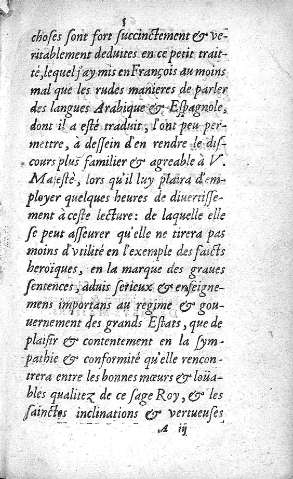 5
choses sont fort succinctement & ve-
ritablement deduites en ce petit trait-
té, lequel j'ay mis en François au moins
mal que les rudes manieres de parler
des langues Arabique & Espagnole,
dont il a esté traduit, l'ont peu per-
mettre, à dessein d'en rendre le dis-
cours plus familier & agreable à V.
Majesté, lors qu'il luy plaira d'em-
ployer quelques heures de divertisse-
ment à ceste lecture: de laquelle elle
se peut asseurer qu'elle ne tirera pas
moins d'vtilité en l'exemple des faicts
heroïques, en la marque des graues
sentences, aduis serieux & enseigne-
mens importans au regime & gou-
uernement des grands Estats, que de
plaisir & contentement en la sym-
pathie & conformité qu'elle rencon-
trera entre les bonnes mœurs & loüa-
bles qualitez de ce sage Roy, & les
sainctes inclinations & vertueuses
A iij